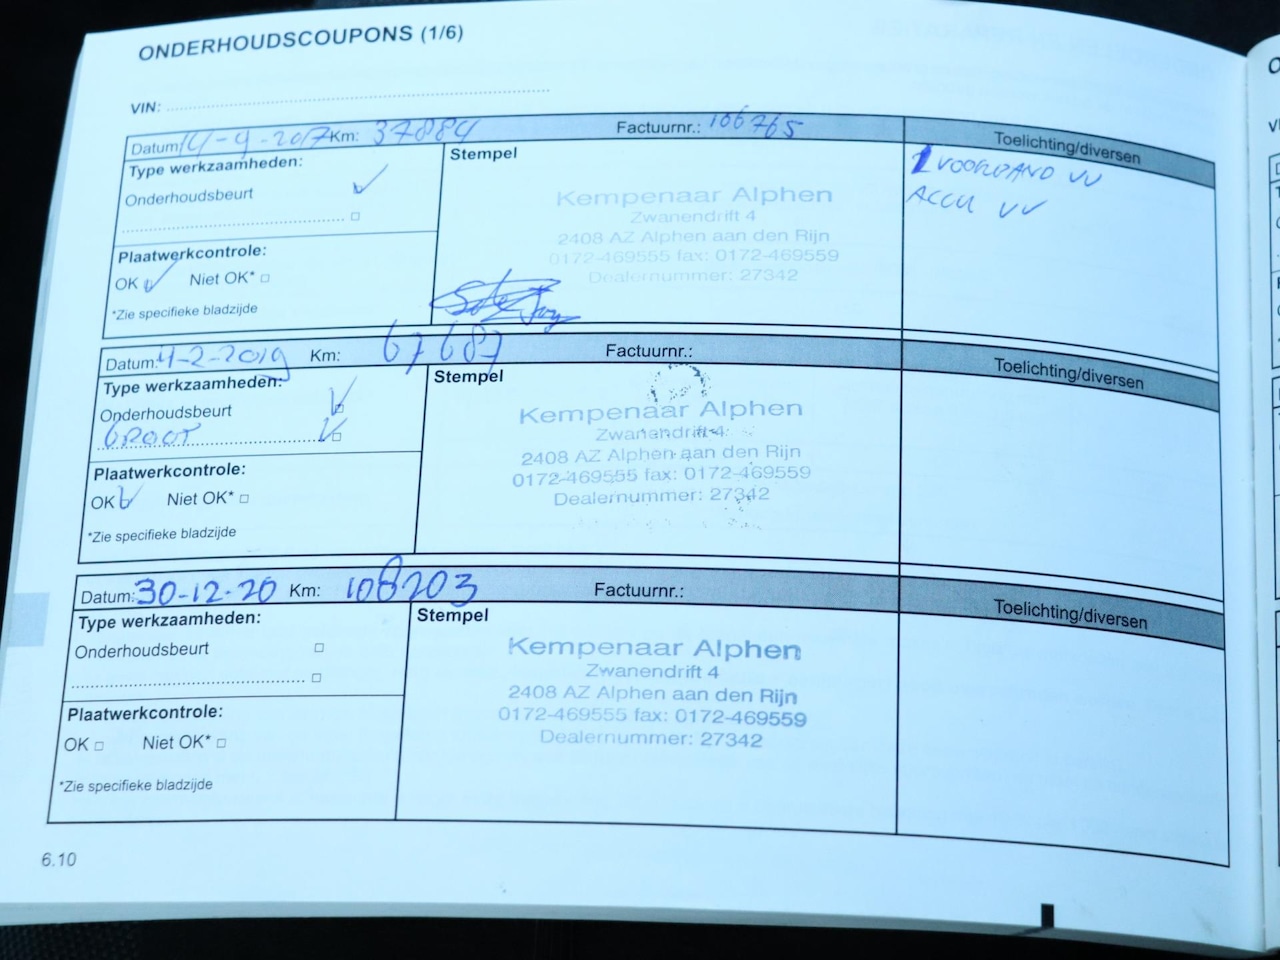 ONDERHOUDSCOUPONS (1/6)
VIN: ..........
Datum: 14-9-2017 Km: 37884 Factuurnr.: 106765 Toelichting/diversen
Type werkzaamheden:
Onderhoudsbeurt
Plaatwerkcontrole:
OK Niet OK* □
*Zie specifieke bladzijde
Stempel
Kempenaar Alphen
Zwanendrift 4
2408 AZ Alphen aan den Rijn
0172-469555 fax: 0172-469559
Dealernummer: 27342
1 VOORBAND VV
ACCU VV
Datum: 4-2-2019 Km: 67687 Factuurnr.: Toelichting/diversen
Type werkzaamheden:
Onderhoudsbeurt
GROOT
Plaatwerkcontrole:
OK Niet OK* □
*Zie specifieke bladzijde
Stempel
Kempenaar Alphen
Zwanendrift 4
2408 AZ Alphen aan den Rijn
0172-469555 fax: 0172-469559
Dealernummer: 27342
Datum: 30-12-20 Km: 108203 Factuurnr.: Toelichting/diversen
Type werkzaamheden:
Onderhoudsbeurt □
.......... □
Plaatwerkcontrole:
OK □ Niet OK* □
*Zie specifieke bladzijde
Stempel
Kempenaar Alphen
Zwanendrift 4
2408 AZ Alphen aan den Rijn
0172-469555 fax: 0172-469559
Dealernummer: 27342
6.10